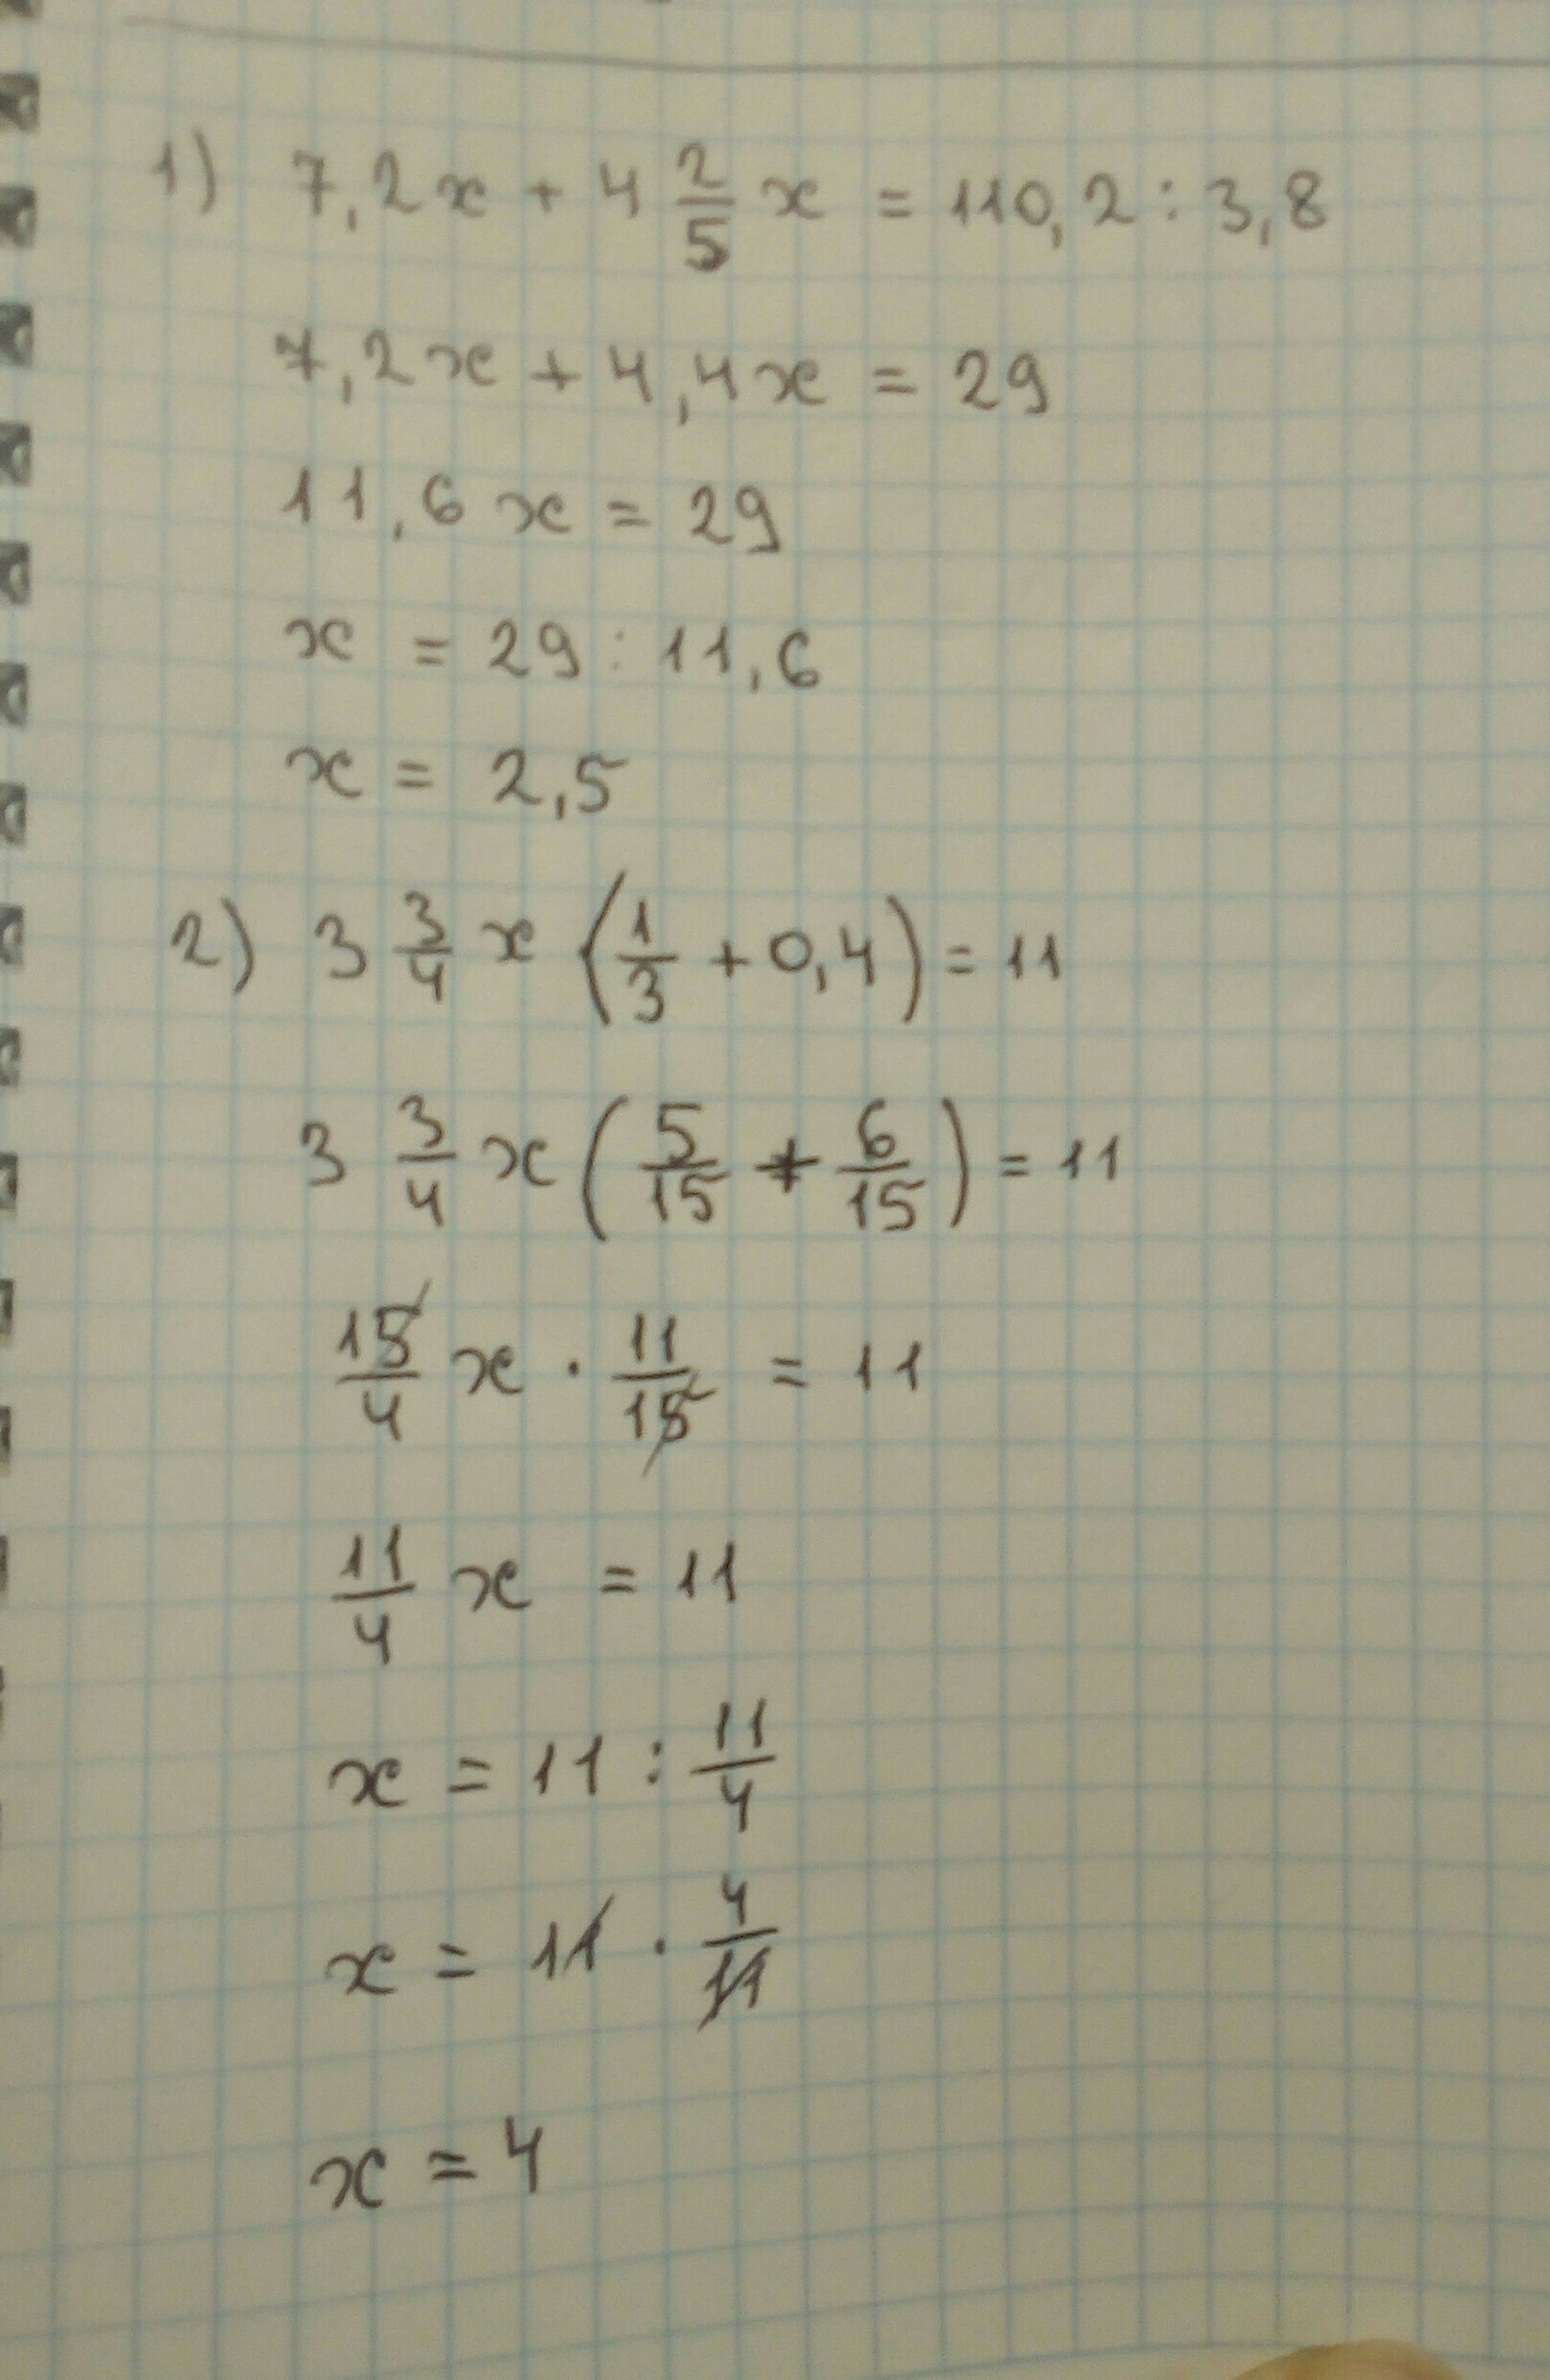 1) 7,2x + 4 2/5 x = 110,2 : 3,8
7,2x + 4,4x = 29
11,6x = 29
x = 29 : 11,6
x = 2,5
2) 3 3/4 x (1/3 + 0,4) = 11
3 3/4 x (5/15 + 6/15) = 11
15/4 x · 11/15 = 11
11/4 x = 11
x = 11 : 11/4
x = 11 · 4/11
x = 4